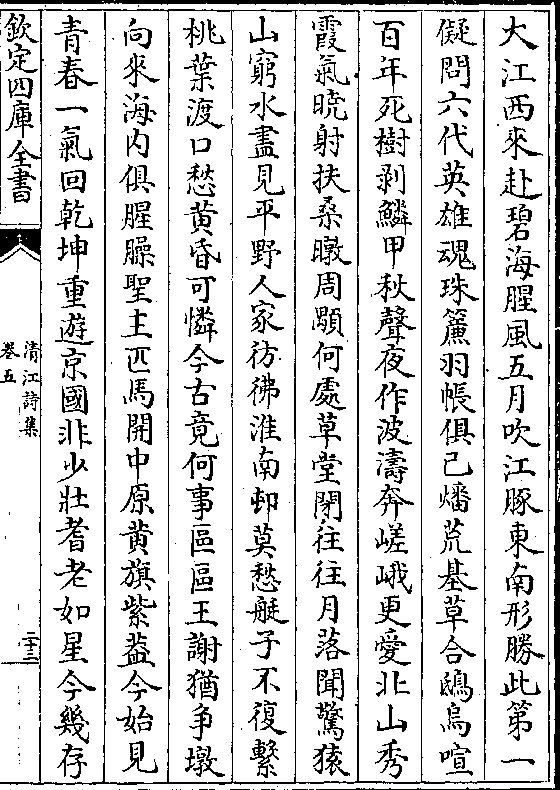 大江西來赴碧海腥風五月吹江豚東南形勝此第一
儗問六代英雄魂珠簾羽帳俱已燔荒基草合鴟烏喧
百年死樹剥鱗甲秋聲夜作波濤奔嵯峨更愛北山秀
霞氣曉射扶桑暾周顒何處草堂閉往往月落聞驚猿
山窮水盡見平野人家彷彿淮南邨莫愁艇子不復繫
桃葉渡口愁黄昏可憐今古竟何事區區王謝猶争墩
向來海内俱腥臊聖主匹馬開中原黄旗紫葢今始見
青春一氣回乾坤重遊京國非少壯耆老如星今幾存
欽定四庫全書
清江詩集
卷五
二十二